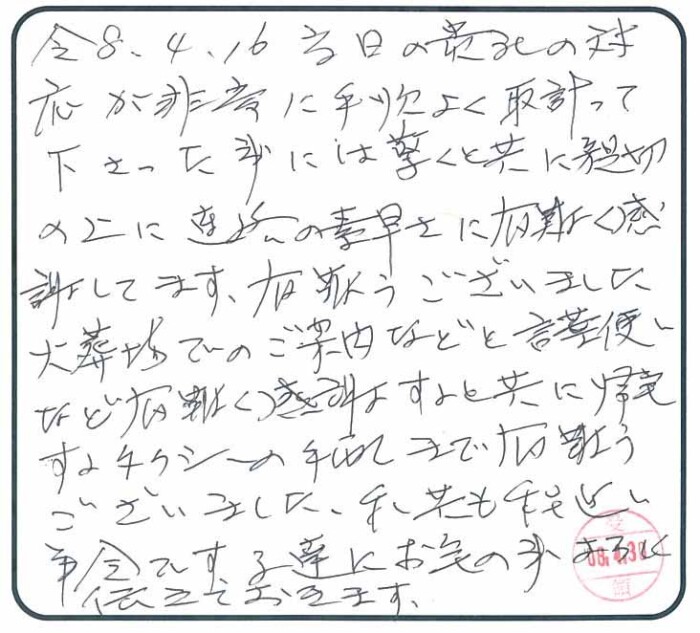 令8.4.16 当日の貴社の対
応が非常に手次よく取計って
下さった事には驚くと共に親切
の上に連絡の素早さに有難く感
謝してます、有難うございました
火葬場でのご案内などと言葉使い
など有難く感謝すると共に帰宅
するタクシーの手配まで有難う
ございました、私共も
年令です子達にお宅の事
伝えておきます。
受
08.4.30
領